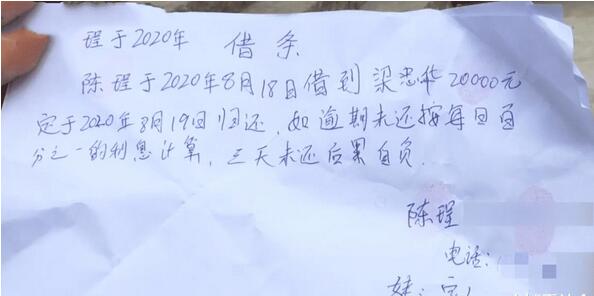 珵于2020年 借条
陈珵于2020年8月18日借到梁忠华20000元
定于2020年8月19日归还,如逾期未还按每日百
分之一的利息计算,三天未还后果自负.
陈珵
电话: